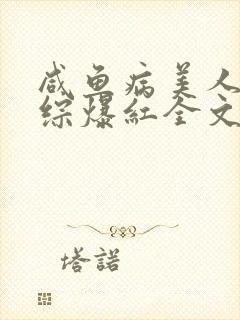 咸鱼病美人
综爆红全文
塔諾